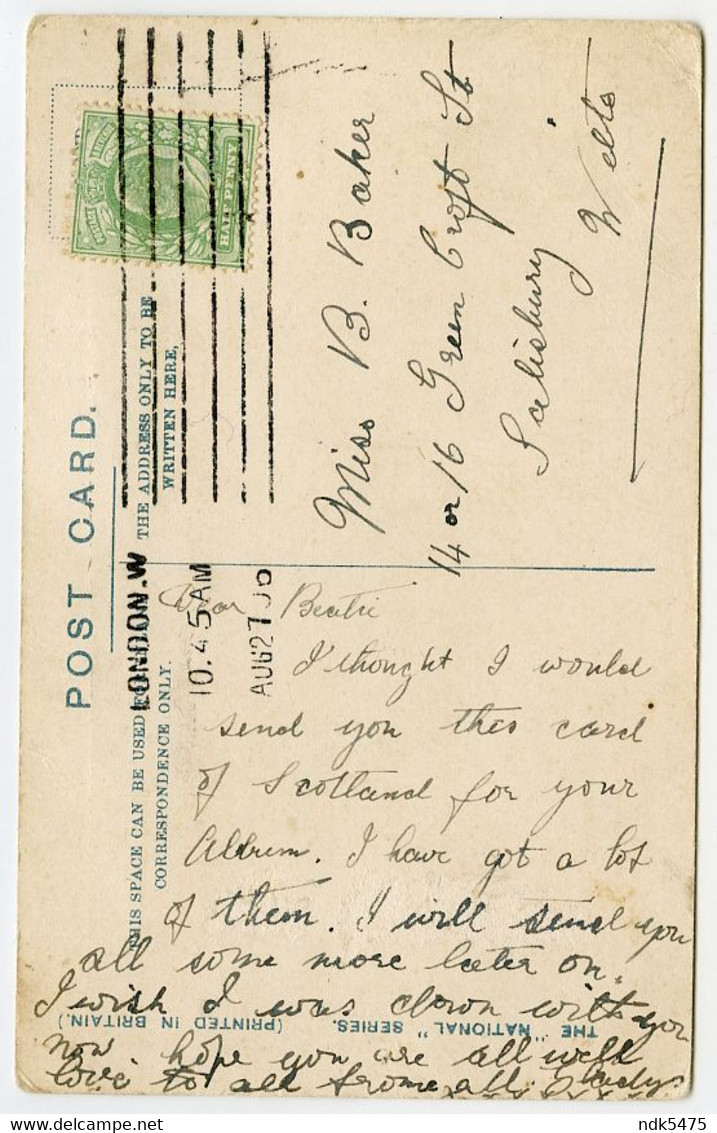 POST CARD.
THE ADDRESS ONLY TO BE
WRITTEN HERE.
THIS SPACE CAN BE USED FOR
CORRESPONDENCE ONLY.
HALF PENNY
LONDON.W
10.45AM
AUG27 06
Miss B. Baker
14 or 16 Green Croft St
Salisbury
Wilts
Dear Beatie
I thought I would
send you this card
of Scotland for your
Album. I have got a lot
of them. I will send you
all some more later on.
I wish I was down with you
now. hope you are all well
love to all frome all. Gladys
x x x x x x
THE "NATIONAL" SERIES. (PRINTED IN BRITAIN.)
ndk5475